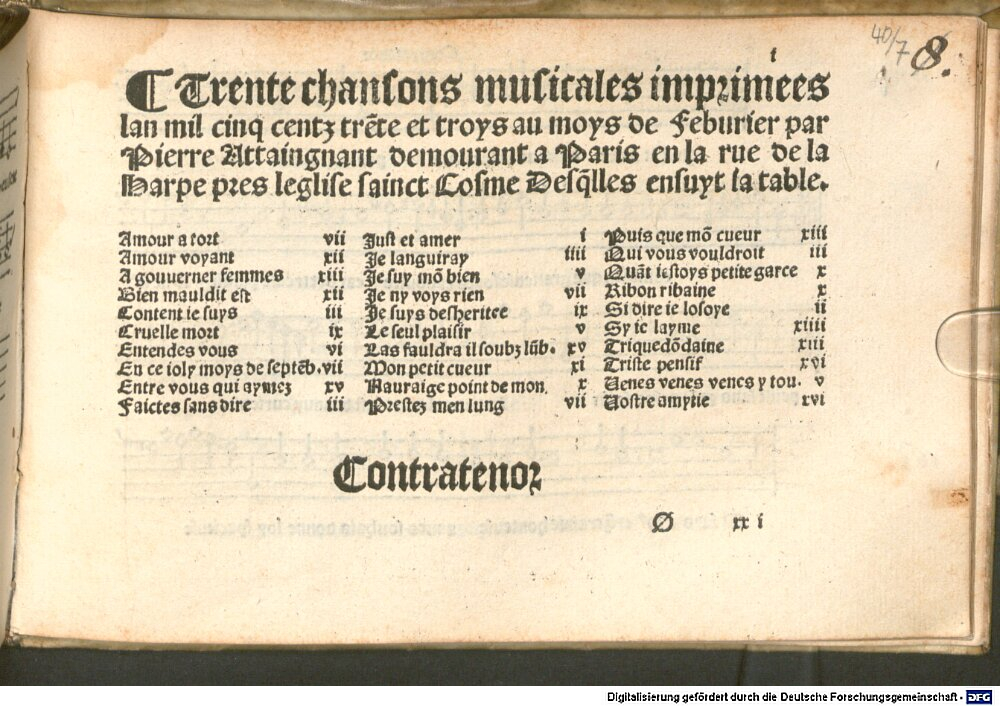 40/7 8.
i
¶ Trente chansons musicales imprimees
lan mil cinq centz trēte et troys au moys de Feburier par
Pierre Attaingnant demourant a Paris en la rue de la
Harpe pres leglise sainct Cosme Desq̄lles ensuyt la table.
Amour a tort vii
Amour voyant xii
A gouuerner femmes xiii
Bien mauldit est xii
Content ie suys iii
Cruelle mort ix
Entendes vous vi
En ce ioly moys de septēb. vii
Entre vous qui aymez xv
Faictes sans dire iii
Just et amer i
Je languiray iiii
Je suy mō bien v
Je ny voys rien vii
Je suys desheritee ix
Le seul plaisir v
Las fauldra il soubz lūb. xv
Mon petit cueur xi
Nauraige point de mon x
Prestez men lung vii
Puis que mō cueur xiii
Qui vous vouldroit iii
Quāt iestoys petite garce x
Ribon ribaine x
Si dire ie losoye ii
Sy ie layme xiiii
Triquedōdaine xiii
Triste pensif xvi
Uenes venes venes y tou. v
Uostre amytie xvi
Contratenor
Ø xxi
Digitalisierung gefördert durch die Deutsche Forschungsgemeinschaft - DFG